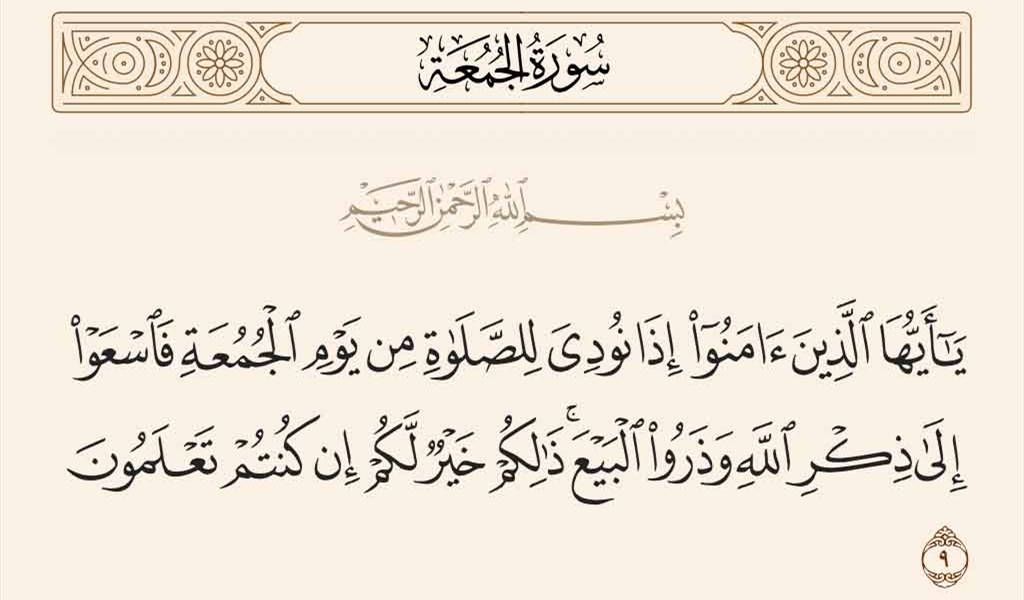 سُورَةُ الجُمُعَةِ
بِسْمِ ٱللَّهِ ٱلرَّحْمَٰنِ ٱلرَّحِيمِ
يَٰٓأَيُّهَا ٱلَّذِينَ ءَامَنُوٓا۟ إِذَا نُودِىَ لِلصَّلَوٰةِ مِن يَوْمِ ٱلْجُمُعَةِ فَٱسْعَوْا۟
إِلَىٰ ذِكْرِ ٱللَّهِ وَذَرُوا۟ ٱلْبَيْعَ ۚ ذَٰلِكُمْ خَيْرٌ لَّكُمْ إِن كُنتُمْ تَعْلَمُونَ
٩